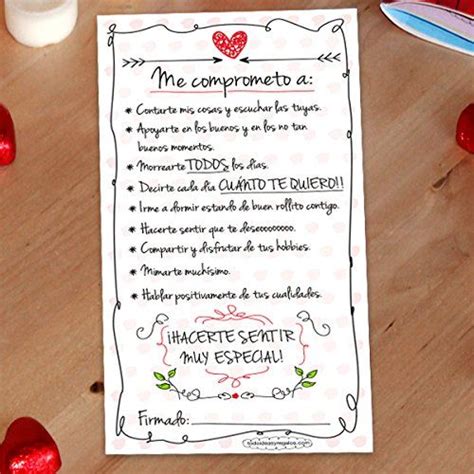 Me comprometo a:
* Contarte mis cosas y escuchar las tuyas.
* Apoyarte en los buenos y en los no tan
buenos momentos.
* Morrearte TODOS los días.
* Decirte cada día CUÁNTO TE QUIERO!!
* Irme a dormir estando de buen rollito contigo.
* Hacerte sentir que te deseoooooooo.
* Compartir y disfrutar de tus hobbies.
* Mimarte muchísimo.
* Hablar positivamente de tus cualidades.
¡HACERTE SENTIR
MUY ESPECIAL!
Firmado: